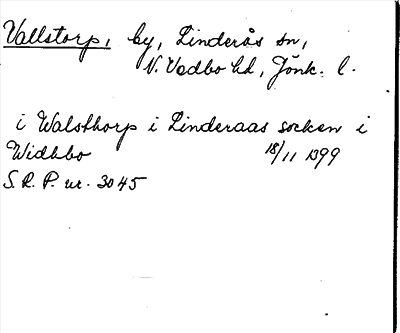 Vallstorp, by, Linderås sn,
N. Vedbo hd, Jönk. l.
i Walsthorp i Linderaas socken i
Widhbo 18/11 1399
S.R.P. nr. 3045